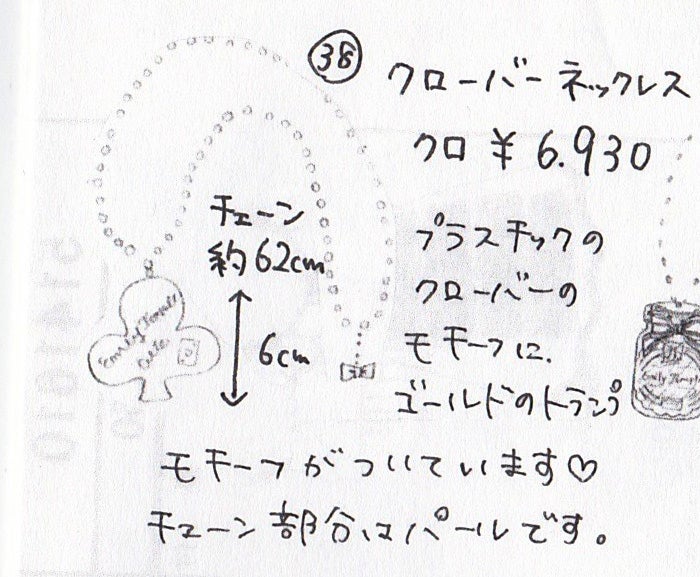 ㊳ クローバーネックレス
クロ ¥6.930
チェーン
約62cm
6cm
Emily Temple
Cute
プラスチックの
クローバーの
モチーフに、
ゴールドのトランプ
モチーフがついています♡
チェーン部分はパールです。